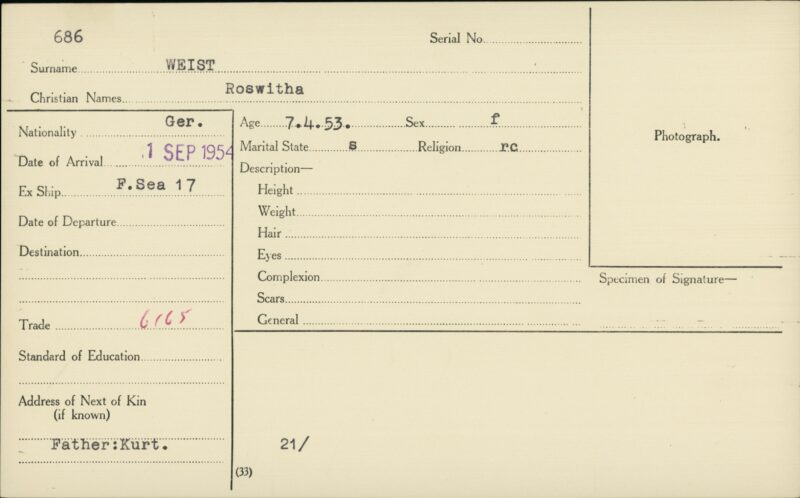 686
Serial No.
Surname WEIST
Christian Names Roswitha
Nationality Ger.
Date of Arrival 1 SEP 1954
Ex Ship F.Sea 17
Date of Departure
Destination
Trade 6165
Standard of Education
Address of Next of Kin
(if known)
Father:Kurt.
Age 7.4.53. Sex f
Marital State s Religion rc
Description—
Height
Weight
Hair
Eyes
Complexion
Scars
General
21/
(33)
Photograph.
Specimen of Signature—